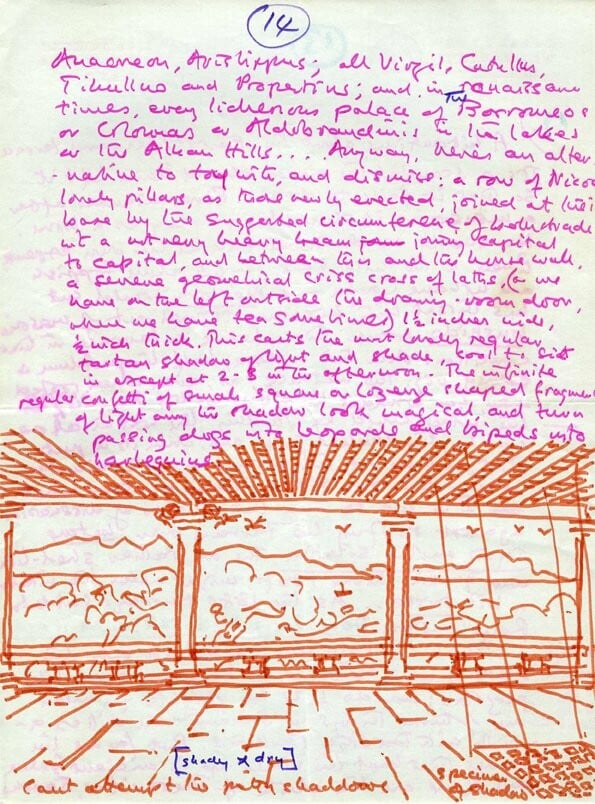 14
Anacreon, Aristippus; all Virgil, Catullus,
Tibullus and Propertius; and in renaissance
times, every licherous palace of the Borromeos
or Colonnas or Aldobrandinis in the lakes
or the Alban Hills.... Anyway, here's an alter
-native to toy with, and dismiss: a row of Nico's
lovely pillars, as those newly erected, joined at their
base by the suggested circumference of balustrade
with a not very heavy beam joining capital
to capital, and between this and the house wall,
a severe geometrical criss cross of laths, (as we
have on the left outside the drawing-room door,
where we have tea sometimes) 1½ inches wide,
½ inch thick. This casts the most lovely regular
tartan shadow of light and shade, cool to sit
in except at 2-3 in the afternoon. The infinite
regular confetti of small square or lozenge shaped fragments
of light among the shadow look magical, and turn
passing dogs into leopards and bipeds into
harlequins.
[shady & dry]
Can't attempt the shaddows
specimen
of shadow